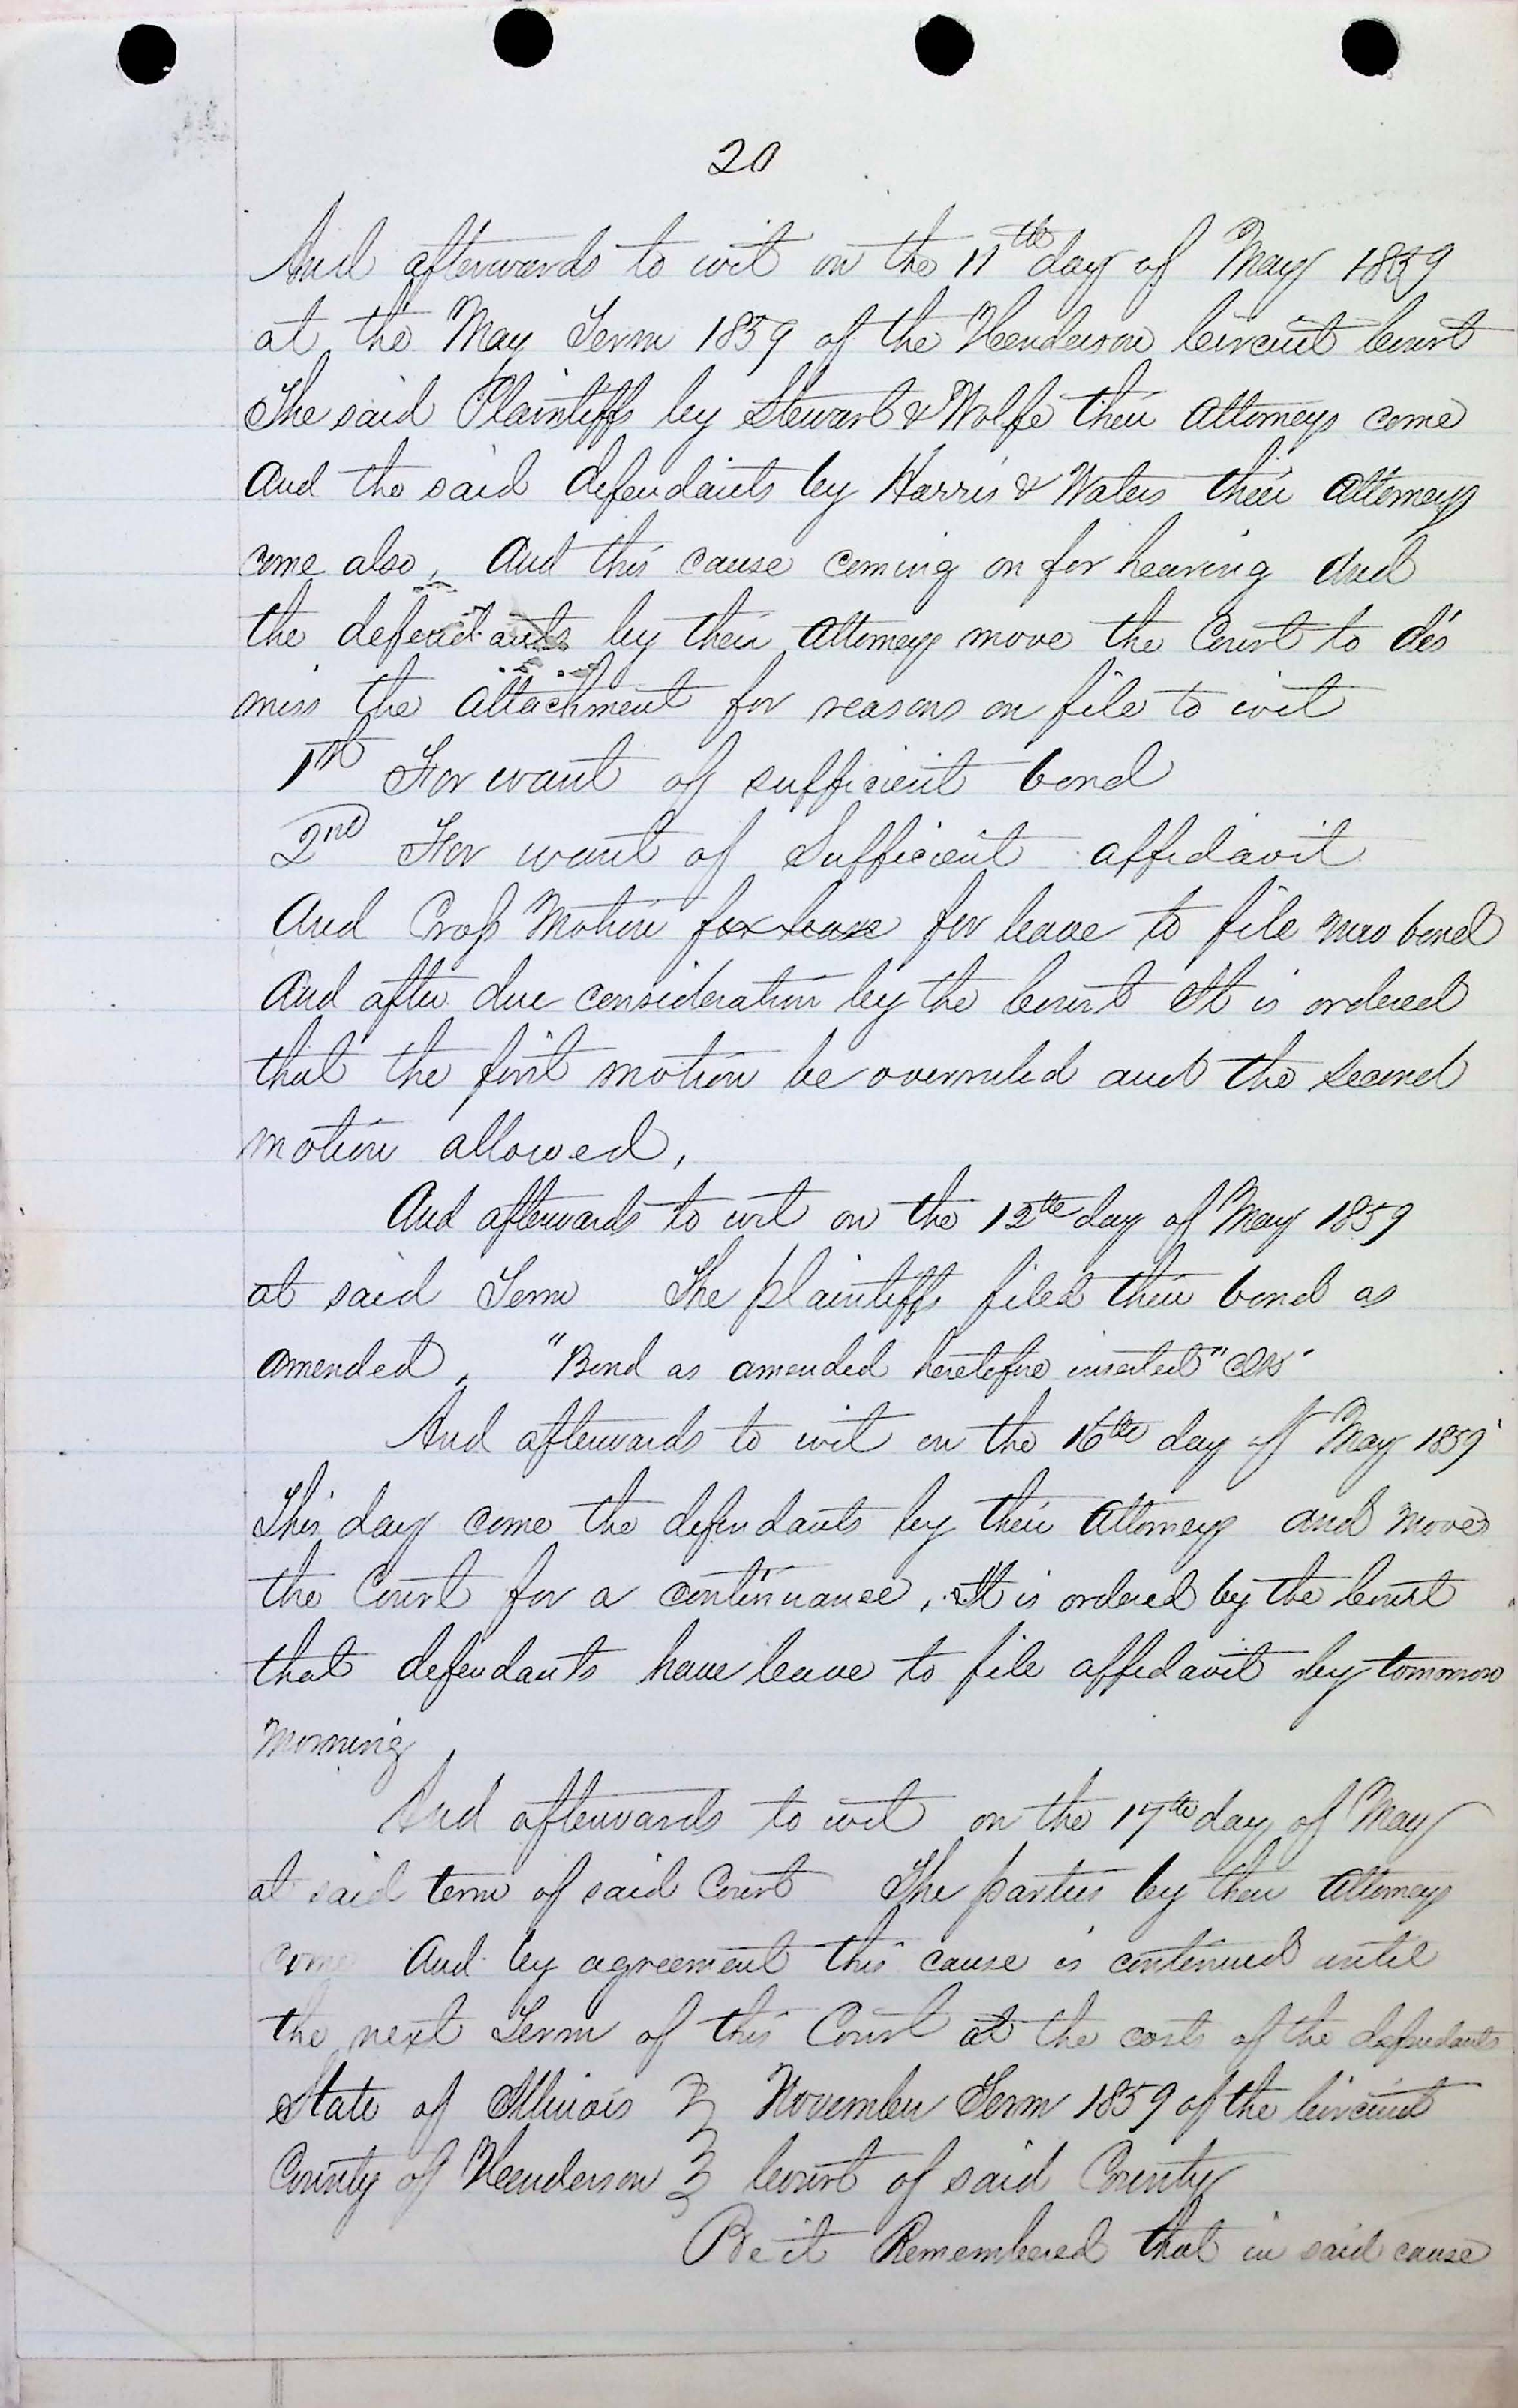 20
And afterwards to wit on the 11th day of May 1859
at the May Term 1859 of the Henderson Circuit Court
The said Plaintiffs by Stewart & Wolfe their Attorneys come
And the said defendants by Harris & Waters their Attorneys
come also, And this cause coming on for hearing And
the defendants by their Attorneys move the Court to dis
miss the Attachment for reasons on file to wit
1st For want of sufficient bond
2nd For want of Sufficient affidavit
And Cross Motion for leave for leave to file new bond
And after due consideration by the Court It is ordered
that the first motion be overruled and the Second
motion allowed,
And afterwards to wit on the 12th day of May 1859
at said Term The plaintiffs filed their bond as
amended, "Bond as amended heretofore inserted"
And afterwards to wit on the 16th day of May 1859
This day come the defendants by their Attorneys and moves
the Court for a continuance, It is ordered by the Court
that defendants have leave to file affidavit by tomorrow
morning,
And afterwards to wit on the 17th day of May
at said term of said Court The parties by their Attorneys
come And by agreement this cause is continued until
the next Term of this Court at the costs of the defendants
State of Illinois } November Term 1859 of the Circuit
County of Henderson } Court of said County
Be it Remembered that in said cause